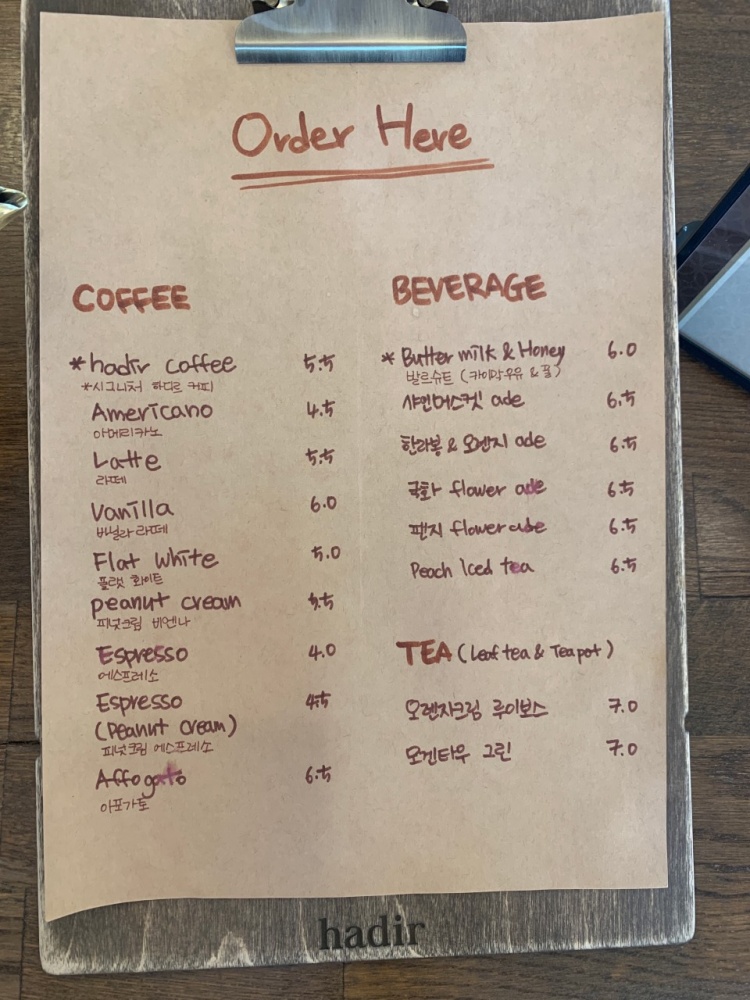 Order Here
COFFEE
*hadir coffee 5.5
*시그니처 하디르 커피
Americano 4.5
아메리카노
Latte 5.5
라떼
Vanilla 6.0
바닐라 라떼
Flat white 5.0
플랫 화이트
peanut cream 5.5
피넛크림 비엔나
Espresso 4.0
에스프레소
Espresso 4.5
(peanut cream)
피넛크림 에스프레소
Affogato 6.5
아포가토
BEVERAGE
* Butter milk & Honey 6.0
발르슈트 (카이막우유 & 꿀)
샤인머스켓 ade 6.5
한라봉 & 오렌지 ade 6.5
국화 flower ade 6.5
팬지 flower ade 6.5
Peach Iced tea 6.5
TEA (Leaf tea & Tea pot)
오렌지크림 루이보스 7.0
모겐타우 그린 7.0
hadir